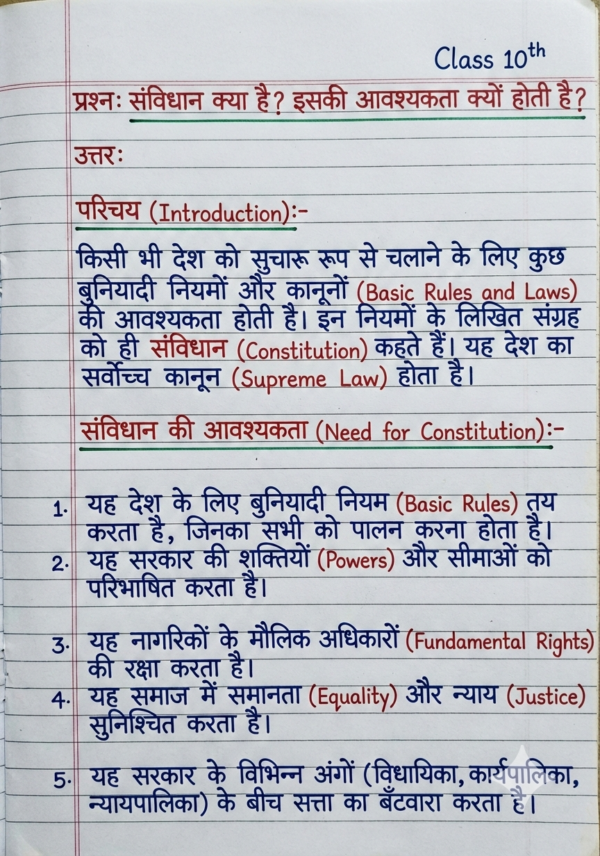 Class 10th
प्रश्नः संविधान क्या है? इसकी आवश्यकता क्यों होती है?
उत्तरः
परिचय (Introduction):-
किसी भी देश को सुचारू रूप से चलाने के लिए कुछ
बुनियादी नियमों और कानूनों (Basic Rules and Laws)
की आवश्यकता होती है। इन नियमों के लिखित संग्रह
को ही संविधान (Constitution) कहते हैं। यह देश का
सर्वोच्च कानून (Supreme Law) होता है।
संविधान की आवश्यकता (Need for Constitution):-
1. यह देश के लिए बुनियादी नियम (Basic Rules) तय
करता है, जिनका सभी को पालन करना होता है।
2. यह सरकार की शक्तियों (Powers) और सीमाओं को
परिभाषित करता है।
3. यह नागरिकों के मौलिक अधिकारों (Fundamental Rights)
की रक्षा करता है।
4. यह समाज में समानता (Equality) और न्याय (Justice)
सुनिश्चित करता है।
5. यह सरकार के विभिन्न अंगों (विधायिका, कार्यपालिका,
न्यायपालिका) के बीच सत्ता का बँटवारा करता है।